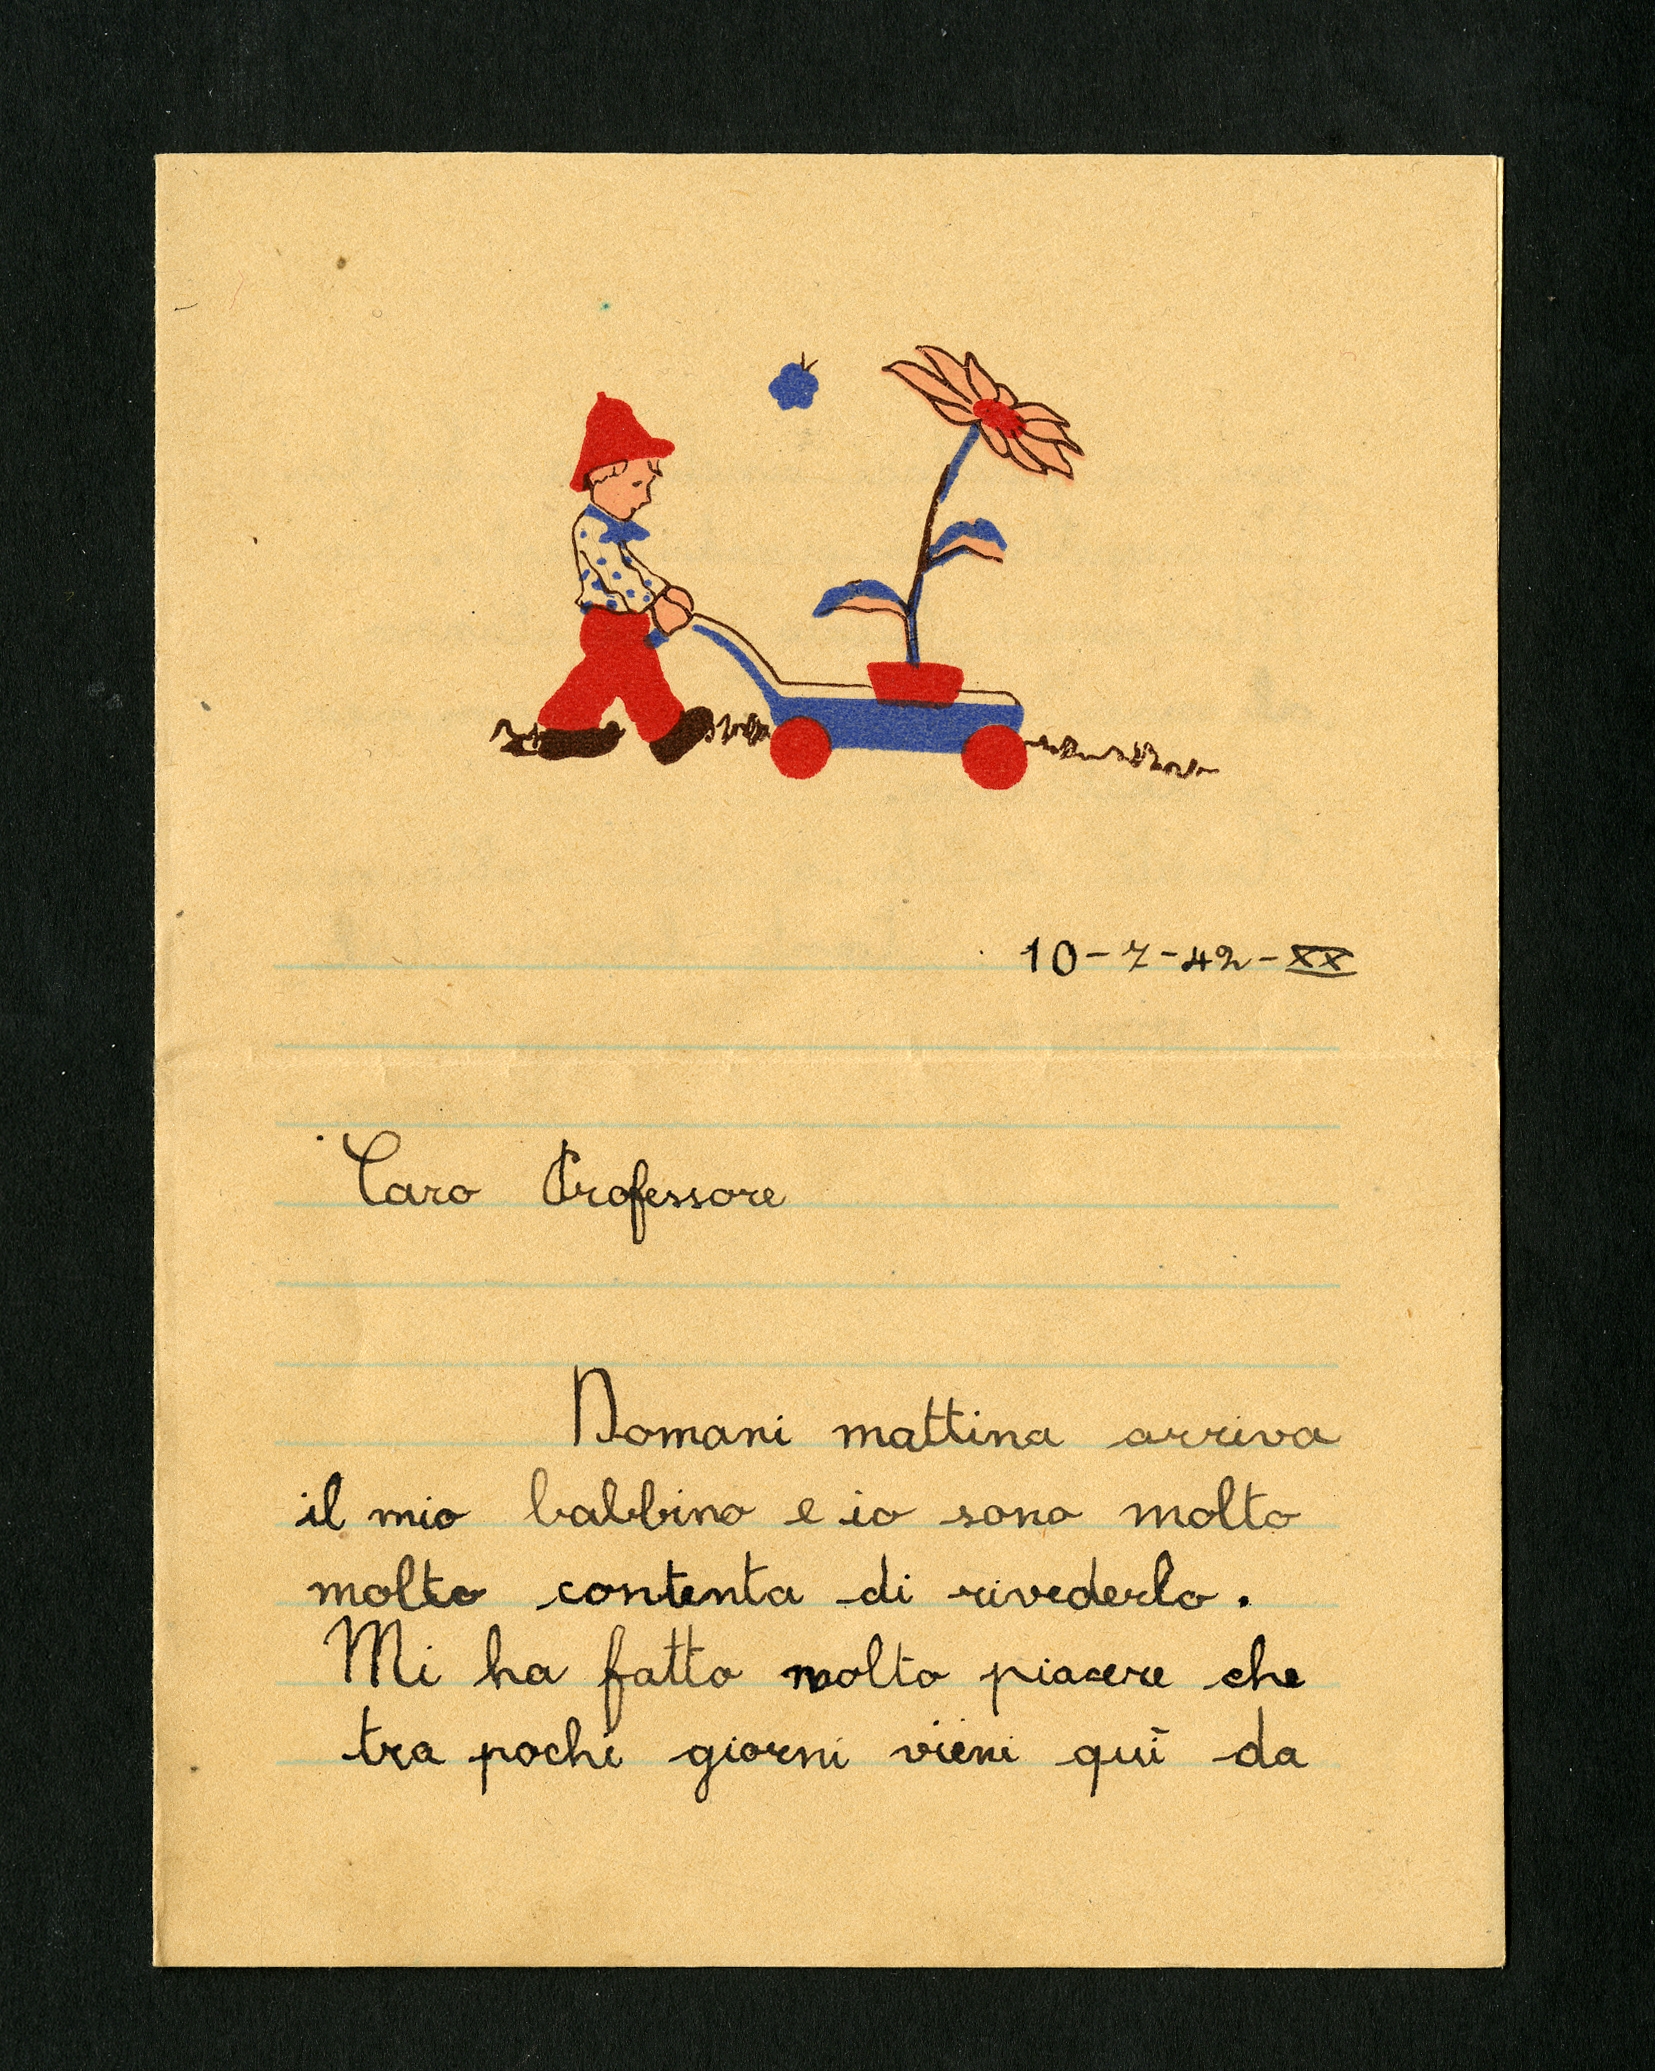 10-7-42-XX
Caro Professore
Domani mattina arriva
il mio babbino e io sono molto
molto contenta di rivederlo.
Mi ha fatto molto piacere che
tra pochi giorni vieni quì da